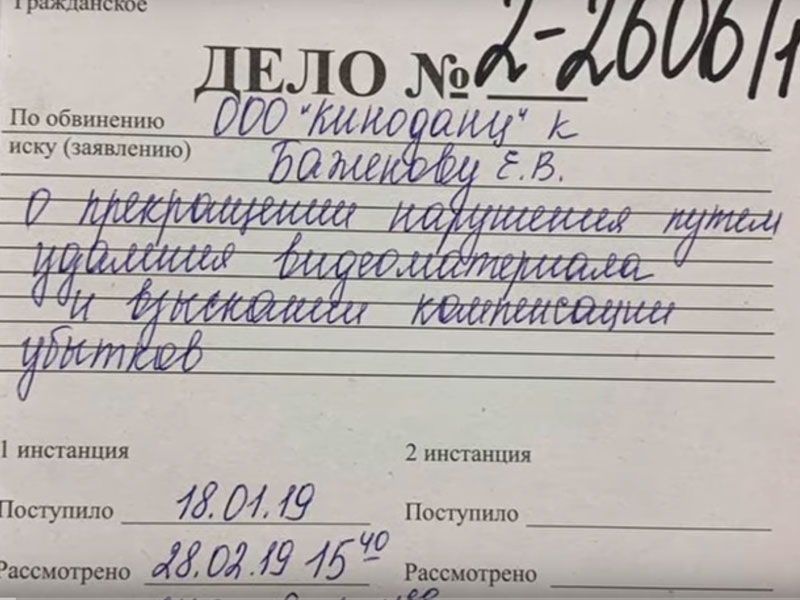 Гражданское
ДЕЛО № 2-2606/1
По обвинению ООО "Кинодану" к
иску (заявлению) Баженову Е.В.
о прекращении нарушения путем
удаления видеоматериала
и взыскании компенсации
убытков
1 инстанция 2 инстанция
Поступило 18.01.19 Поступило
Рассмотрено 28.02.19 15 40 Рассмотрено